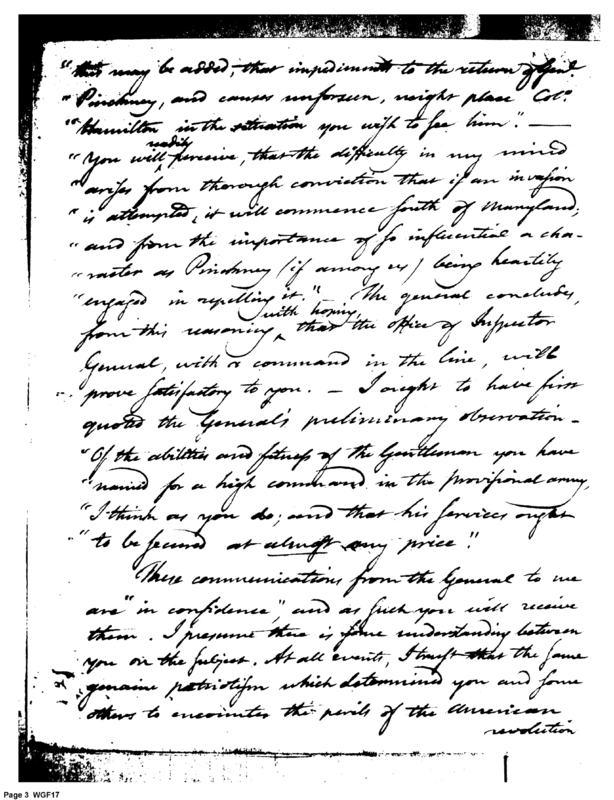 "this may be added, that impediments to the return of Genl.
"Pinckney, and causes unforseen, might place Colo.
"Hamilton in the situation you wish to see him". —
"You will readily perceive, that the difficulty in my mind
"arises from thorough conviction that if an invasion
"is attempted, it will commence south of Maryland;
"and from the importance of so influential a cha-
"racter as Pinckney (if among us) being heartily
"engaged in repelling it." — The general concludes,
from this reasoning, with hoping, that the office of Inspector
General, with a command in the line, will
prove satisfactory to you. — I ought to have first
quoted the General's preliminary observation —
"Of the abilities and fitness of the Gentleman you have
"named for a high command in the provisional army,
"I think as you do; and that his services ought
"to be secured at almost any price".
These communications from the General to me
are "in confidence", and as such you will receive
them. I presume there is some understanding between
you on the subject. At all events, I trust that the same
genuine patriotism which determined you and some
others to encounter the perils of the American
revolution
Page 3 WGF17